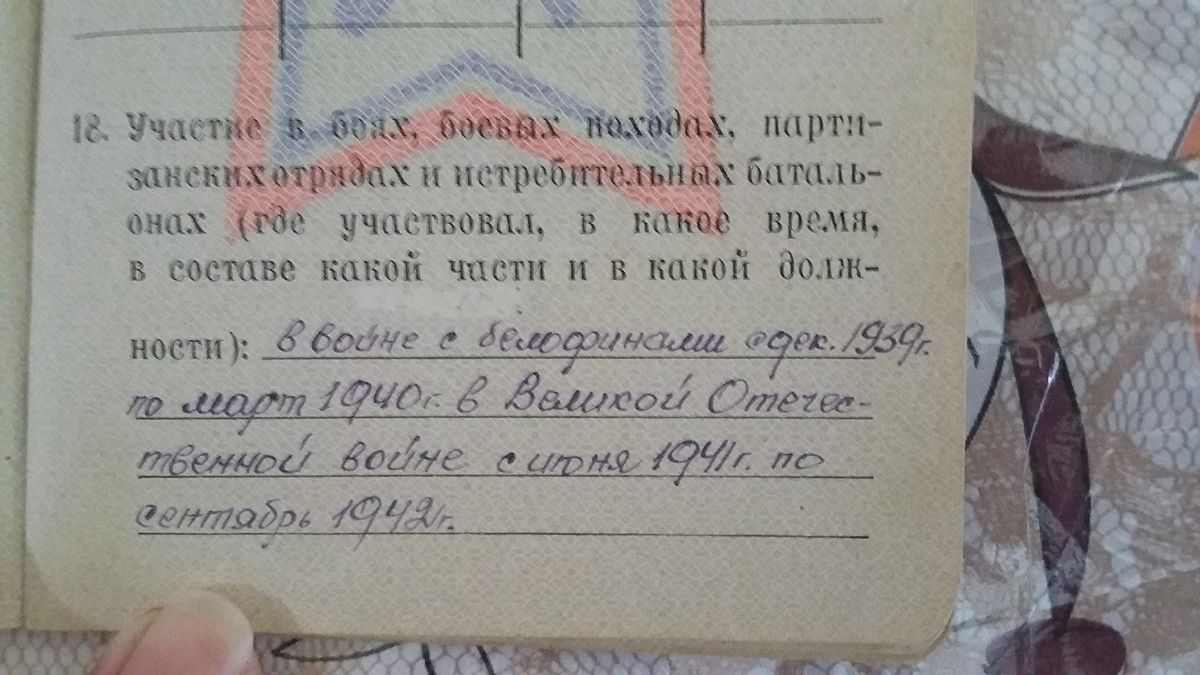 18. Участие в боях, боевых походах, парти-
занских отрядах и истребительных баталь-
онах (где участвовал, в какое время,
в составе какой части и в какой долж-
ности): в войне с белофинами с дек. 1939г.
по март 1940г. в Великой Отечес-
твенной войне с июня 1941г. по
сентябрь 1942г.